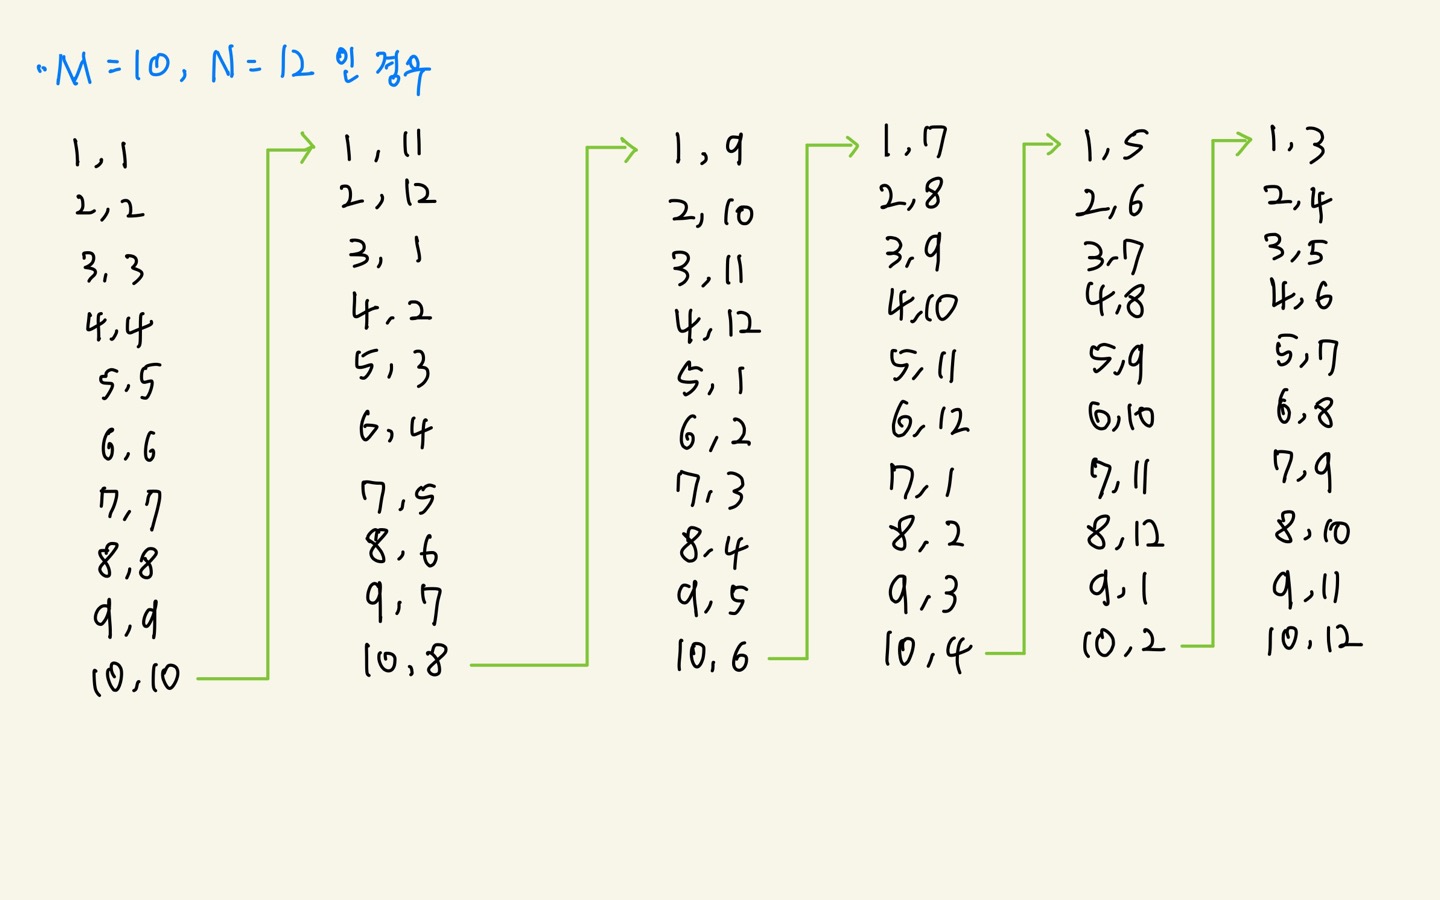 "M=10, N=12 인 경우
1,1
2,2
3,3
4,4
5,5
6,6
7,7
8,8
9,9
10,10
1,11
2,12
3,1
4,2
5,3
6,4
7,5
8,6
9,7
10,8
1,9
2,10
3,11
4,12
5,1
6,2
7,3
8,4
9,5
10,6
1,7
2,8
3,9
4,10
5,11
6,12
7,1
8,2
9,3
10,4
1,5
2,6
3,7
4,8
5,9
6,10
7,11
8,12
9,1
10,2
1,3
2,4
3,5
4,6
5,7
6,8
7,9
8,10
9,11
10,12